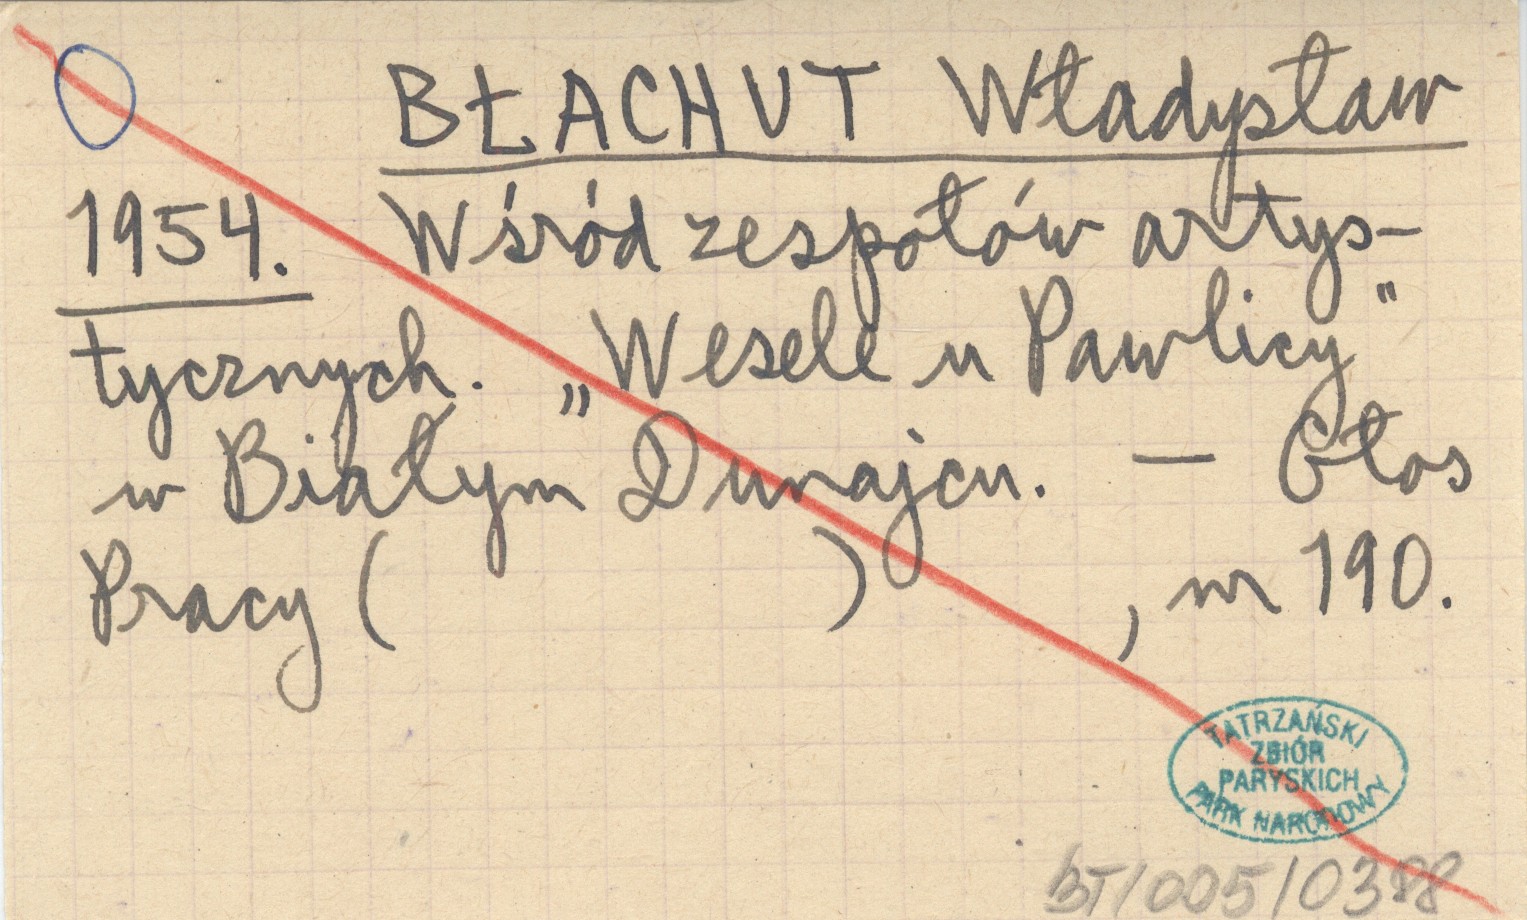 BŁACHUT Władysław
1954. Wśród zespołów artys-
tycznych. „Wesele u Pawlicy"
w Białym Dunajcu. — Głos
Pracy ( ) , nr 190.
TATRZAŃSKI
ZBIÓR
PARYSKICH
PARK NARODOWY
BT/005/0388